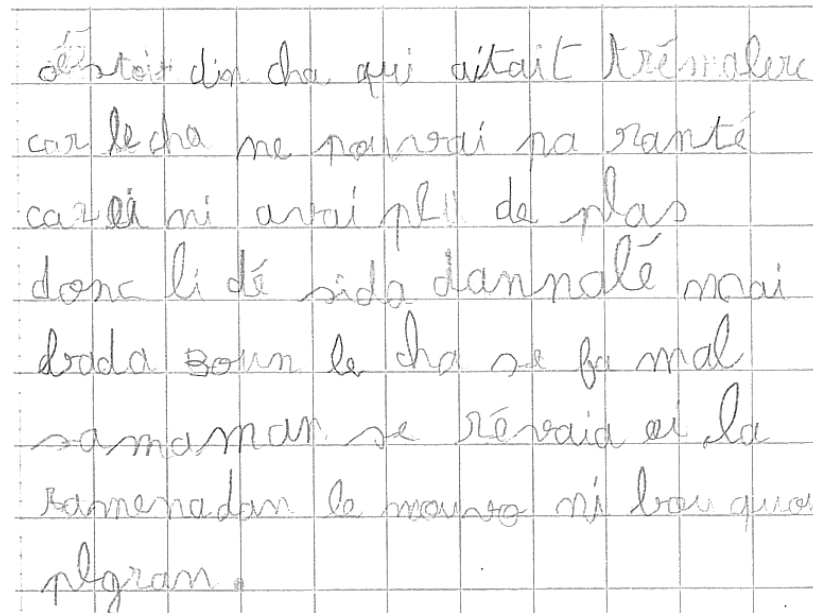 éstoit din cha qui aitait trémalere
car le cha ne pouvrai pa ranté
car ei ni avai plu de plas
donc li dé sida dannalé mai
brada boun le cha se fa mal
samaman se révaia ei la
ramenadan le mouvo ni bou quou
plgran.